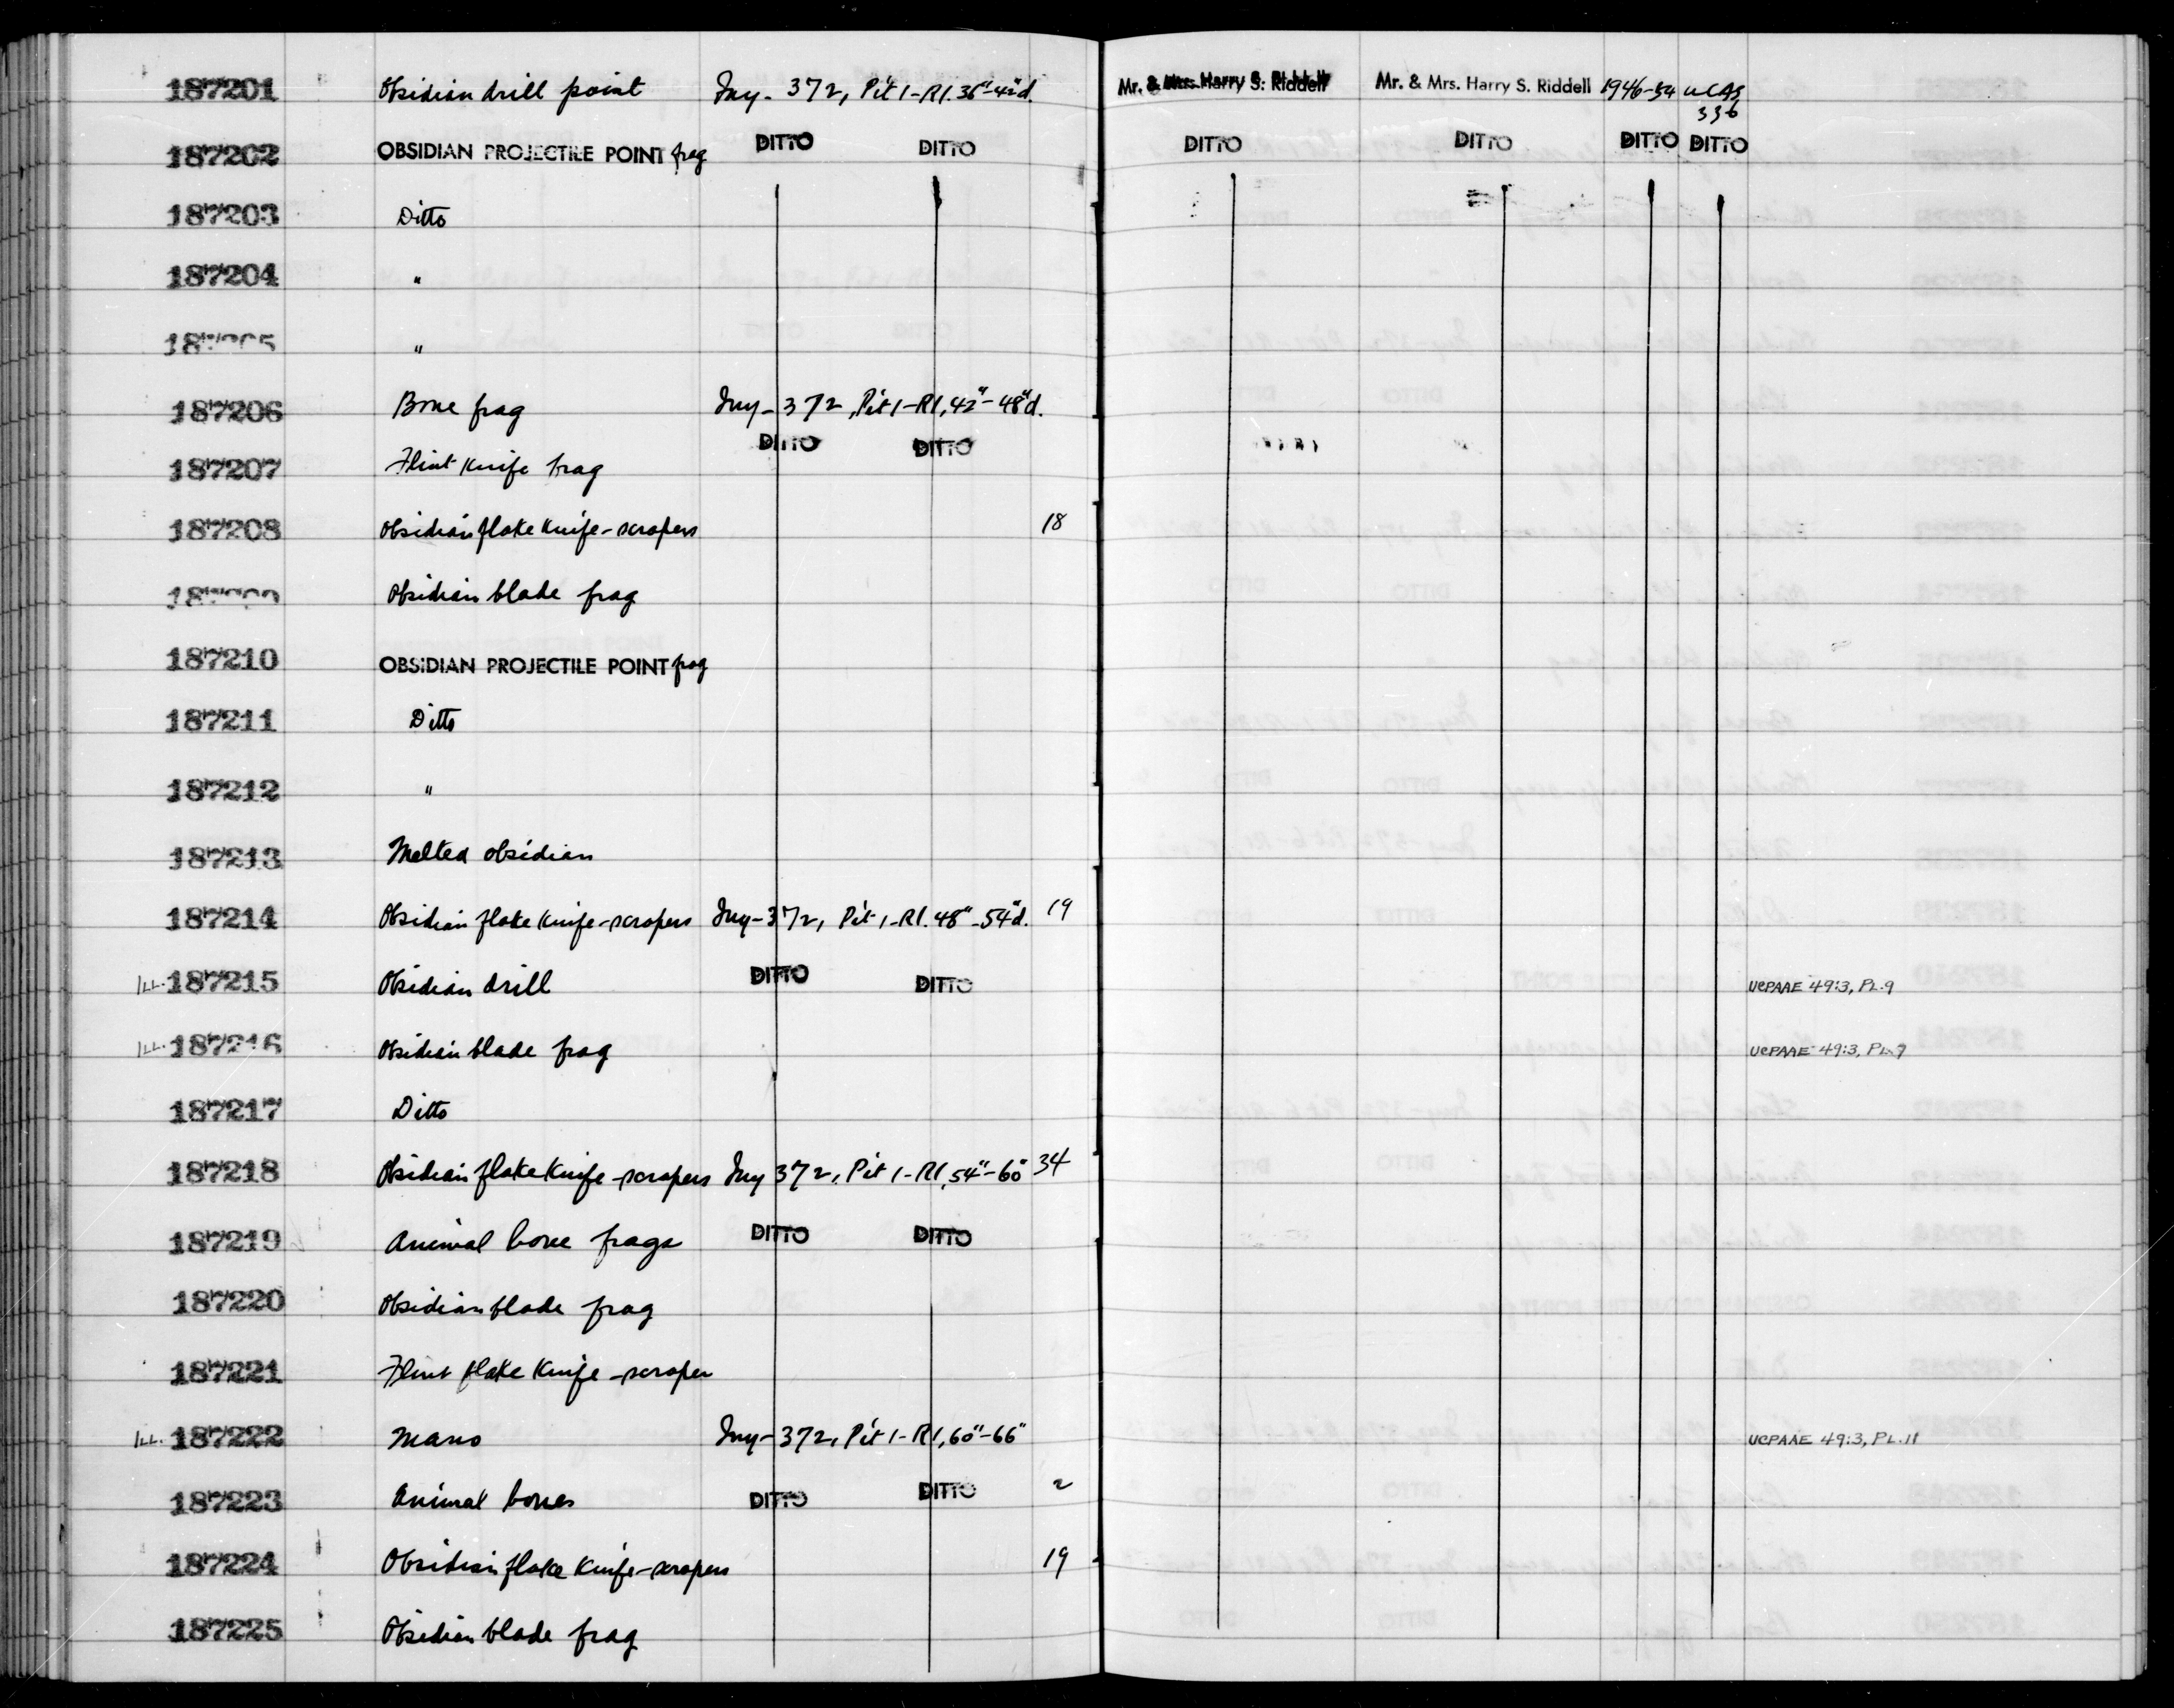 187201 Obsidian drill point Iny- 372, Pit 1-R1. 36"-42"d. Mr. & Mrs. Harry S. Riddell Mr. & Mrs. Harry S. Riddell 1946-54 UCAS
336
187202 OBSIDIAN PROJECTILE POINT frag DITTO DITTO DITTO DITTO DITTO DITTO
187203 Ditto
187204 "
187205 "
187206 Bone frag Iny-372, Pit 1-R1, 42"-48"d.
187207 Flint Knife frag DITTO DITTO
187208 Obsidian flake knife-scrapers 18
187209 Obsidian blade frag
187210 OBSIDIAN PROJECTILE POINT frag
187211 Ditto
187212 "
187213 Melted obsidian
187214 Obsidian flake knife-scrapers Iny-372, Pit 1-R1. 48"-54"d. 19
Ill. 187215 Obsidian drill DITTO DITTO UCPAAE 49:3, PL.9
Ill. 187216 Obsidian blade frag UCPAAE 49:3, PL.9
187217 Ditto
187218 Obsidian flake Knife-scrapers Iny 372, Pit 1-R1, 54"-60" 34
187219 Animal bone frags DITTO DITTO
187220 Obsidian blade frag
187221 Flint flake Knife-scraper
Ill. 187222 Mano Iny-372, Pit 1-R1, 60"-66" UCPAAE 49:3, PL.11
187223 Animal bones DITTO DITTO 2
187224 Obsidian flake Knife-scrapers 19
187225 Obsidian blade frag